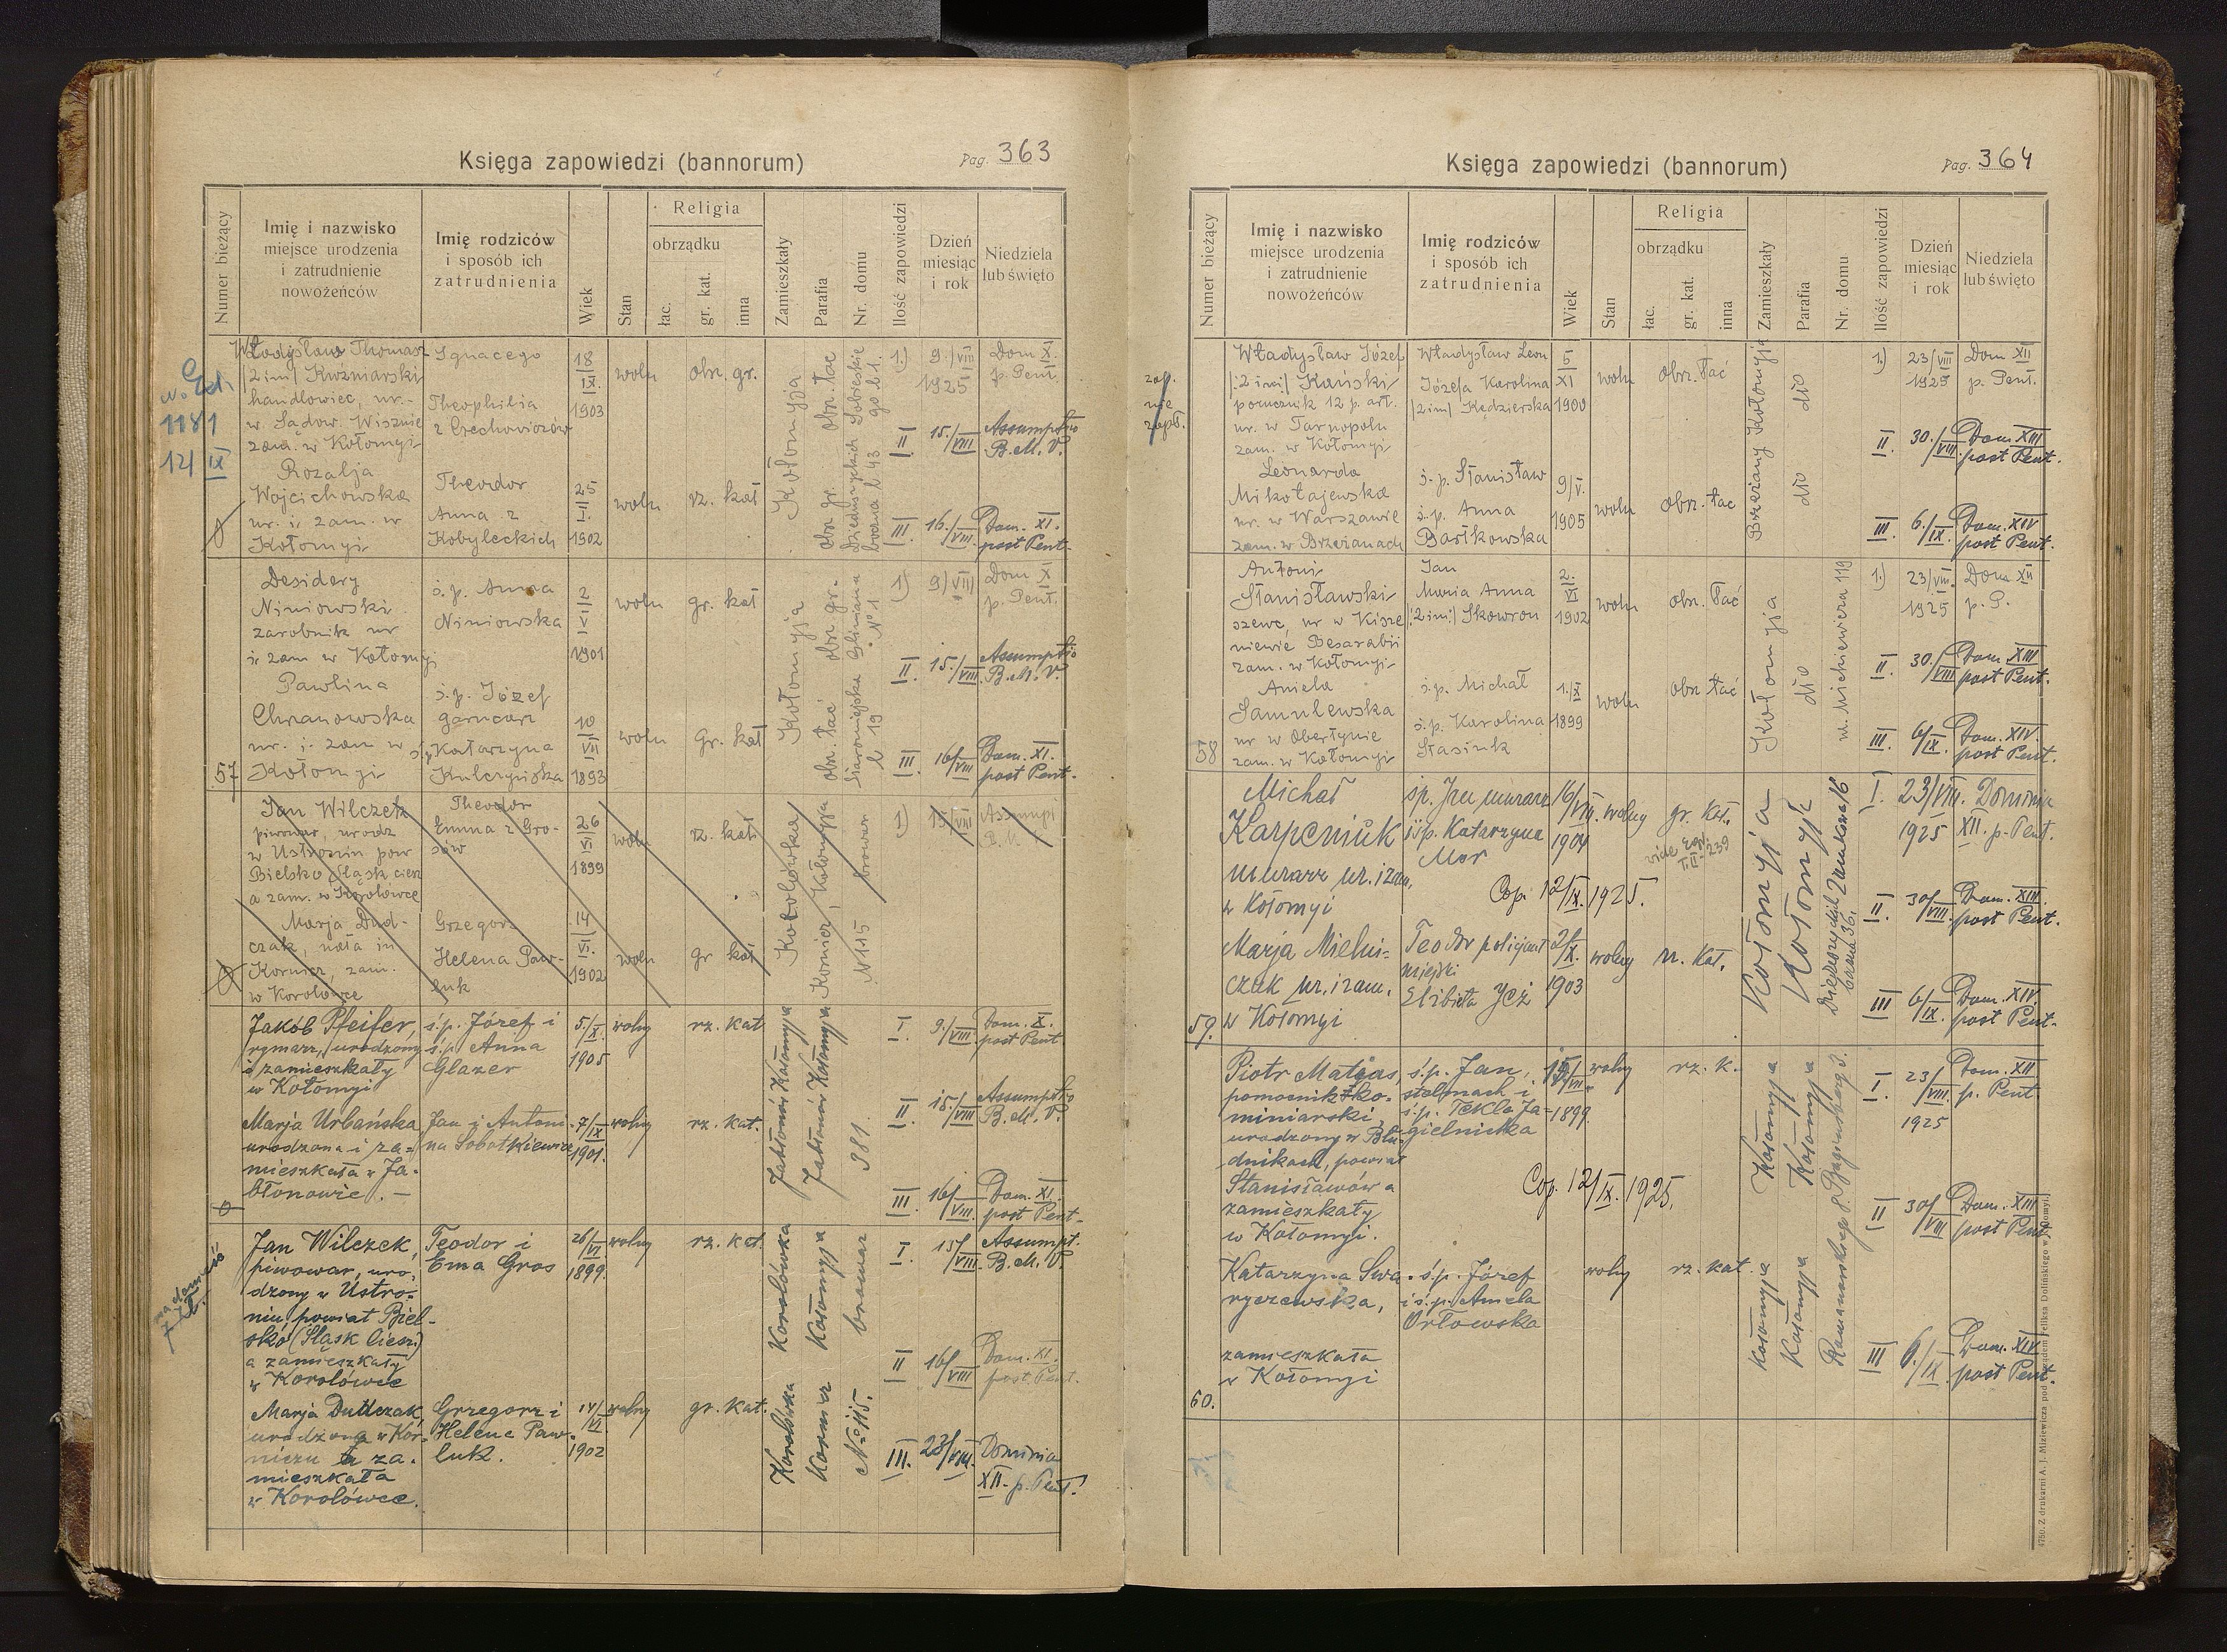 Księga zapowiedzi (bannorum)
Pag. 363
Numer bieżący
Imię i nazwisko
miejsce urodzenia
i zatrudnienie
nowożeńców
Imię rodziców
i sposób ich
zatrudnienia
Wiek
Stan
Religia
obrządku
łac.
gr. kat.
inna
Zamieszkały
Parafia
Nr. domu
Ilość zapowiedzi
Dzień
miesiąc
i rok
Niedziela
lub święto
1181
12/IX
Władysław Thomasz
/2 im/ Kuźniarski
handlowiec, ur.
w Sądow. Wisznie
zam. w Kołomyi
Ignacego
Theophilia
z Grechowiczów
18
IX.
1903
woln
obrz. gr.
Kołomyja
1.) 9./VIII 1925 Dom X. p. Pent.
II 15./VIII Assumptio B. M. V.
III 16./VIII. Dom. XI. post Pent.
Rozalja
Wojcichowska
ur. i. zam. w
Kołomyi
Theodor
Anna z
Kobyleckich
25
II.
1902
woln
rz. kat
57
Desidery
Niniowski
zarobnik ur
i. zam w Kołomyi
ś. p. Anna
Niniowska
2
V
1901
woln
gr. kat
Kołomyja
1) 9/VIII Dom X p. Pent.
II. 15./VIII. Assumptio B. M. V.
III. 16/VIII Dom. XI. post Pent.
Pawlina
Chranowska
ur. i. zam w
Kołomyi
ś. p. Józef
garncarz
Katarzyna
Kulczyńska
10
VII
1893
woln
gr. kat
l 19
Jan Wilczek
piwowar, urodz
w Ustroniu pow
Bielsko Śląsk ciesz
a zam. w Korolówce
Theodor
Emma z Gro-
sów
26
VI
1899
woln
rz. kat.
Korolówka
browar
1) 15/VIII Assumpt B. M.
Marja Dud-
czak, nata in
Kornicz, zam.
w Korolówce
Grzegorz
Helena Paw-
luk
14
VI.
1902
woln
gr kat
Kornicz, Kołomyja
N 115
Jakób Pfeifer,
rymarz, urodzony
i zamieszkały
w Kołomyi
ś. p. Józef i
ś. p. Anna
Glazer
5./X.
1905
wolny
rz. kat
I 9./VIII. Dom. X. post Pent.
II 15./VIII. Assumptio B. M. V.
III 16/VIII. Dom. XI. post Pent.
Marja Urbańska
urodzona i za-
mieszkała w Ja-
błonowie.
Jan i Antoni-
na Sobotkiewicz
7/IX
1901.
wolny
rz. kat.
Jabłonów Kołomyja
Jabłonów Kołomyja
381
Jan Wilczek,
piwowar, uro-
dzony w Ustro-
niu, powiat Biel-
sko (Śląsk Ciesz)
a zamieszkały
w Korolówce
Teodor i
Ema Gros
26/VI
1899.
wolny
rz. kat.
Korolówka
Kołomyja
browar
I 15/VIII. Assumpt. B. M. V.
II 16/VIII Dom. XI. post Pent.
III. 23/VIII. Dominica XII. p. Pent.
Marja Dudczak
urodzona w Kor-
niczu a za-
mieszkała
w Korolówce.
Grzegorz i
Helena Paw-
luk.
14/VI.
1902
wolny
gr. kat.
Korolówka
Kornicz
Nr 115.
Księga zapowiedzi (bannorum)
Pag. 364
Numer bieżący
Imię i nazwisko
miejsce urodzenia
i zatrudnienie
nowożeńców
Imię rodziców
i sposób ich
zatrudnienia
Wiek
Stan
Religia
obrządku
łac.
gr. kat.
inna
Zamieszkały
Parafia
Nr. domu
Ilość zapowiedzi
Dzień
miesiąc
i rok
Niedziela
lub święto
zap.
nie
zapł.
Władysław Józef
/:2 imi/ Kański
porucznik 12 p. art.
ur. w Tarnopolu
zam. w Kołomyi
Władysław Leon
Józefa Karolina
/2 im/ Kędzierska
5
XI
1900
woln
obrz. łać
Brzeżany Kołomyja
dio
dio
1.) 23/VIII 1925 Dom XII p. Pent.
II. 30./VIII Dom XIII post Pent.
III. 6./IX. Dom. XIV post Pent.
Leonarda
Mikołajewska
ur. w Warszawie
zam. w Brzeżanach
ś. p. Stanisław
ś. p. Anna
Bartkowska
9/V.
1905
woln
obrz. łac
58
Antoni
Stanisławski
szewc, ur w Kisze
niewie Besarabii
zam. w Kołomyi
Jan
Maria Anna
/:2 im:/ Skowron
2.
VI
1902
woln
obrz. łać
Kołomyja
dio
ul. Mickiewicza 119
1.) 23/VIII. 1925 Dom XII p. P.
II 30./VIII Dom XIII post Pent.
III. 6/IX. Dom. XIV. post Pent.
Aniela
Samulewska
ur w Obertynie
zam. w Kołomyi
ś. p. Michał
ś. p. Karolina
Stasiuk
1./X
1899
woln
obrz łać
59.
Michał
Karpeniuk
murarz ur. i zam.
w Kołomyi
śp. Jan murarz
śp. Katarzyna
Mor
16/VIII.
1904
wolny
gr. kat.
Cop. 12/IX. 1925.
Kołomyja
Kołomyja
I. 23/VIII. 1925 Dominica XII. p. Pent.
II. 30/VIII. Dom. XIII. post Pent.
III 6/IX. Dom. XIV. post Pent.
Marja Mielni-
czuk ur. i zam.
w Kołomyi
Teodor policjant
miejski
Elżbieta Jeż
2/IX.
1903
wolny
rz. kat.
60.
Piotr Matias,
pomocnik ko-
miniarski,
urodzony w Błu-
dnikach, powiat
Stanisławów a
zamieszkały
w Kołomyi.
ś. p. Jan,
stelmach i
ś. p. Tekla Ja-
gielnicka
1899.
wolny
rz. k.
Cop. 12/IX. 1925.
Kołomyja
Kołomyja
I 23/VIII. 1925 Dom. XII p. Pent.
II 30/VIII Dom. XIII post Pent.
III 6./IX. Dom. XIV post Pent.
Katarzyna Swa-
ryczewska,
zamieszkała
w Kołomyi
ś. p. Józef
i ś. p. Aniela
Orłowska
wolny
rz. kat.
Kołomyja
Kołomyja